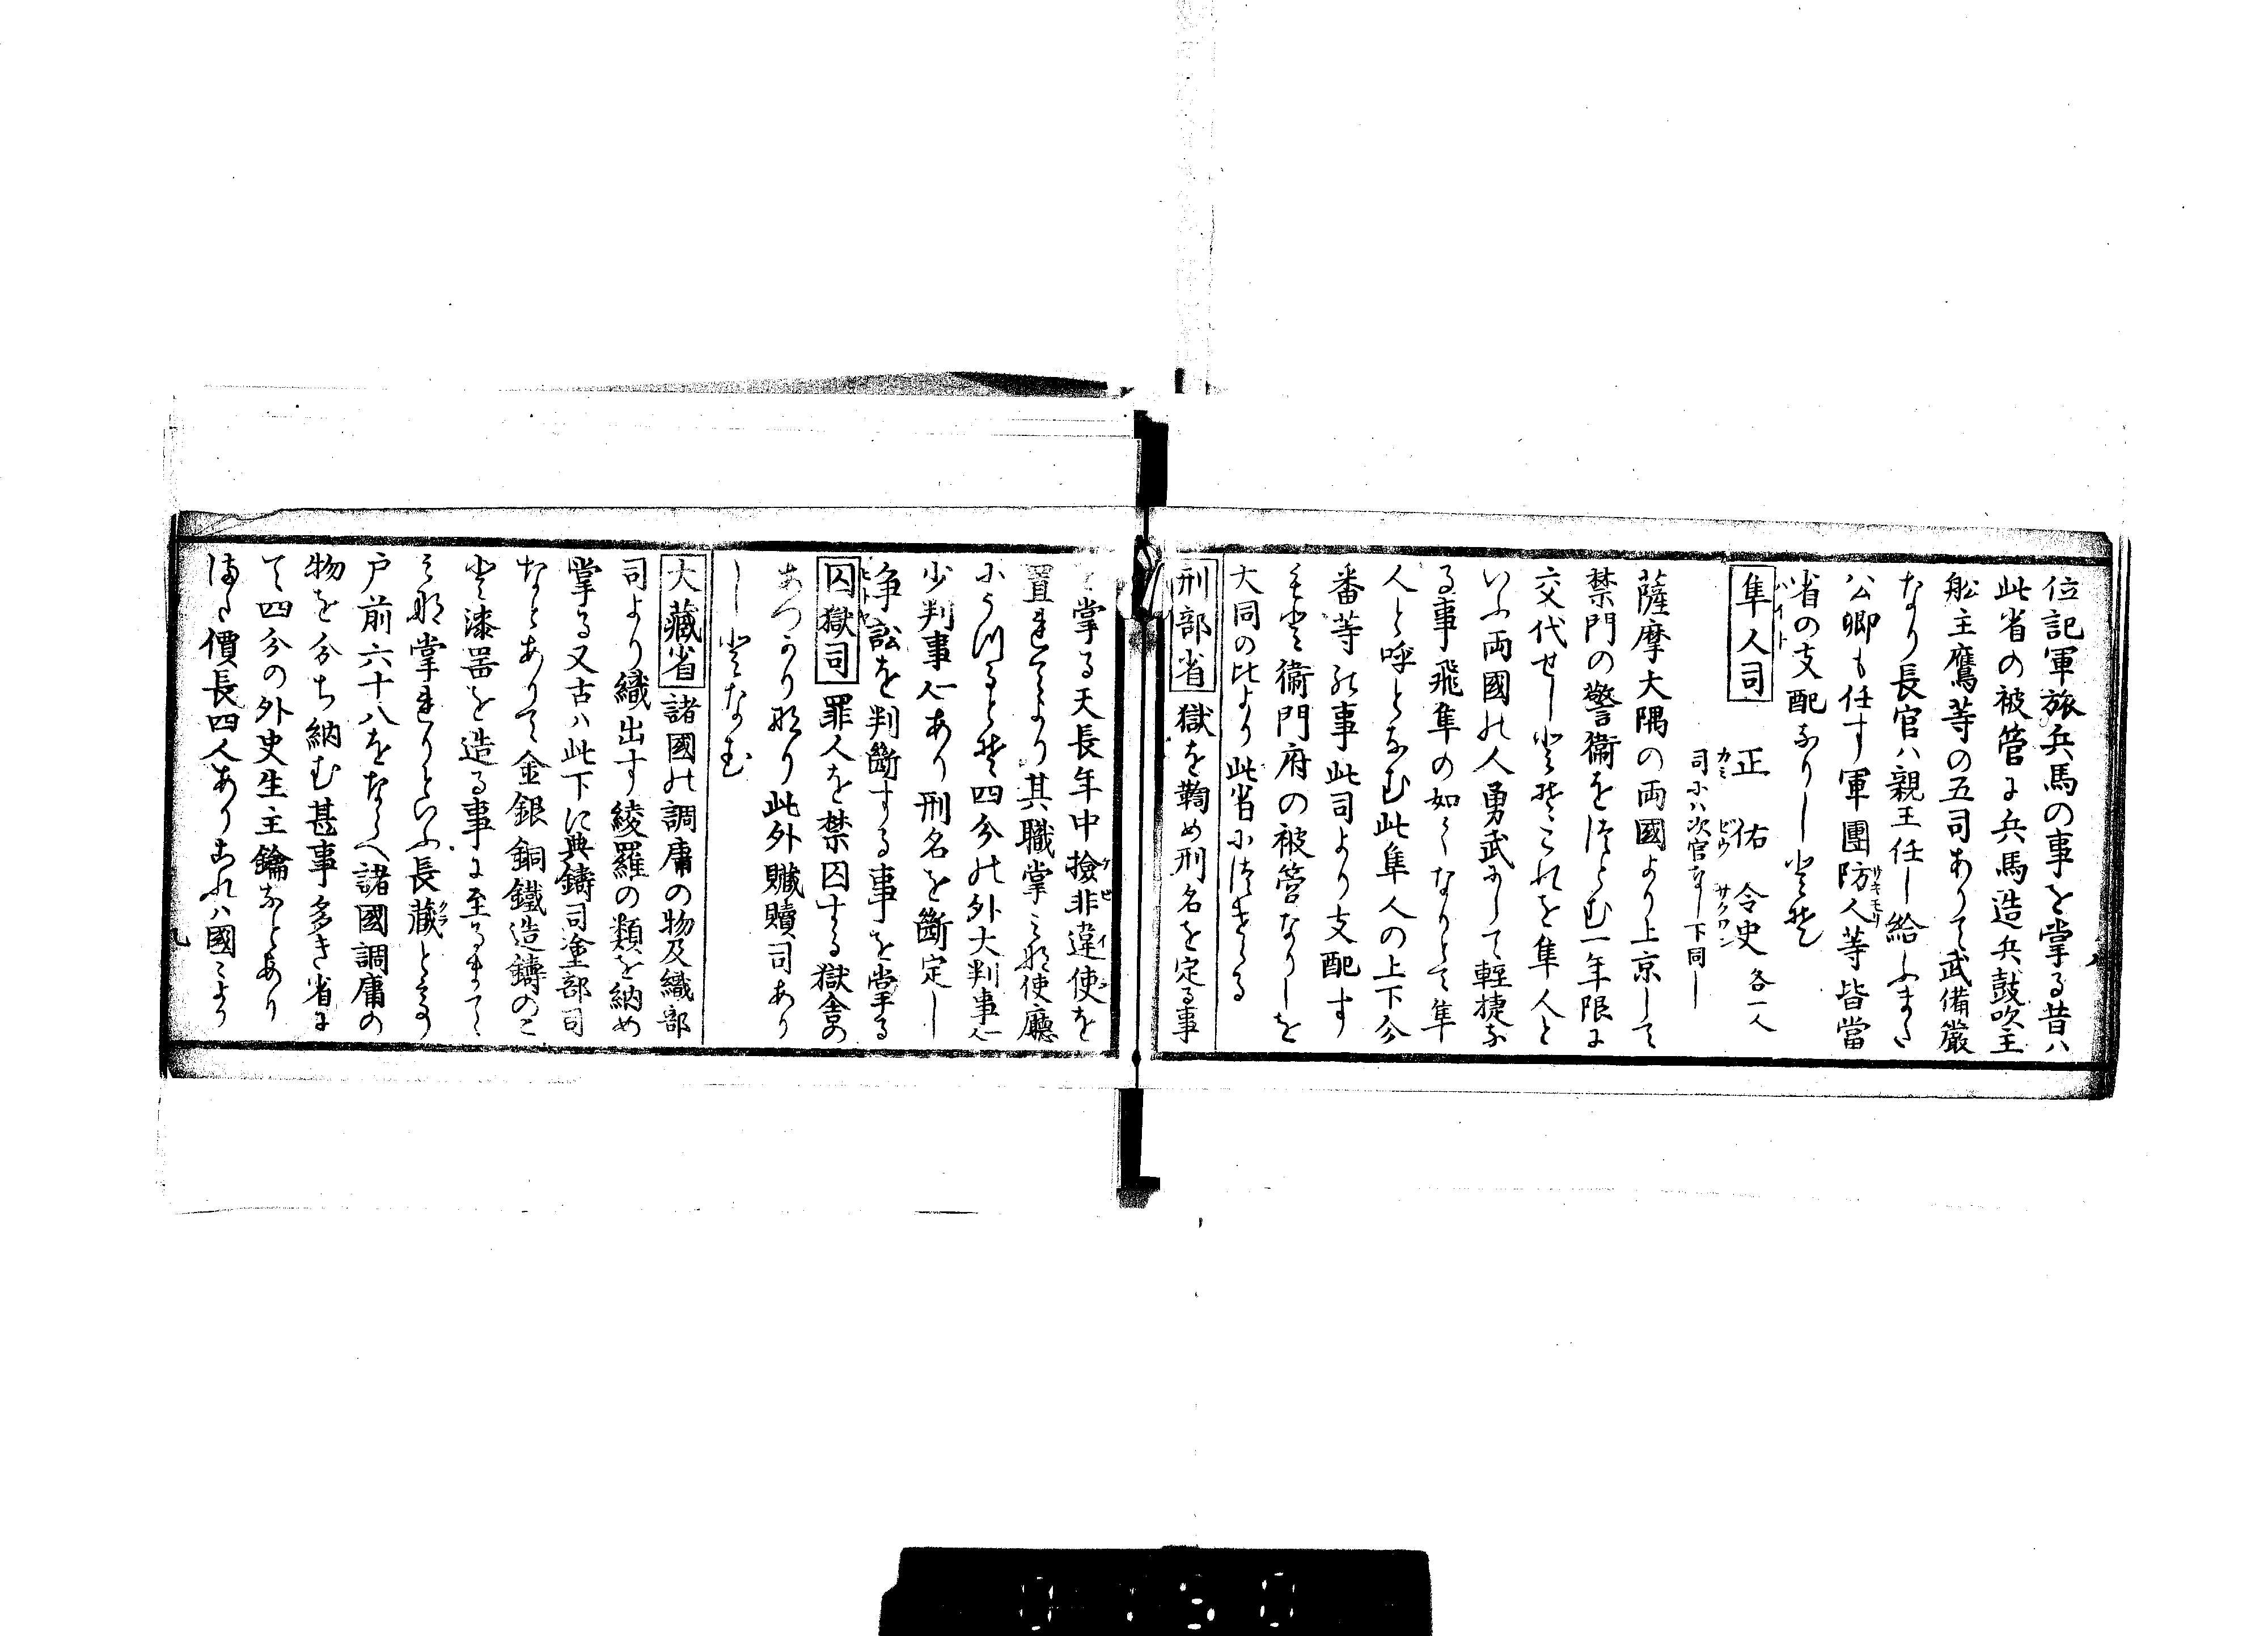 位記軍旅兵馬の事を掌る昔ハ
此省の被管に兵馬造兵鼓吹主
舩主鷹等の五司ありて武備嚴
なり長官ハ親王任し給ふまた
公卿も任す軍團防人等皆當
サキモリ
省の支配なりしとそ
隼人司 正 佑 令史 各一人
ハイト カミ ゼウ サクワン
司にハ次官なし下同し
薩摩大隅の両國より上京して
禁門の警衞をつとむ一年限に
交代せしとそこれを隼人と
いふ両國の人勇武にして輕捷な
る事飛隼の如くなりとて隼
人と呼となむ此隼人の上下分
番等の事此司より支配す
もと衞門府の被管なりしを
大同の比より此省につけらる
刑部省 獄を鞫め刑名を定る事
を掌る天長年中撿非違使を
ケビイシ
置れてより其職掌みな使廳
にうつるとそ四分の外大判事二人
少判事二人あり刑名を斷定し
争訟を判斷する事を掌る
囚獄司 罪人を禁囚する獄舎の
あつかりなり此外贓贖司あり
しとなむ
大藏省 諸國の調庸の物及織部
司より織出す綾羅の類を納め
掌る又古ハ此下に典鑄司塗部司
なとありて金銀銅鐵造鑄のこ
と漆噐を造る事に至るまて
みな掌れりといふ長藏とて
クラ
戸前六十八をならへ諸國調庸の
物を分ち納む甚事多き省に
て四分の外史生主鑰なとあり
また價長四人ありこれハ國々より
九